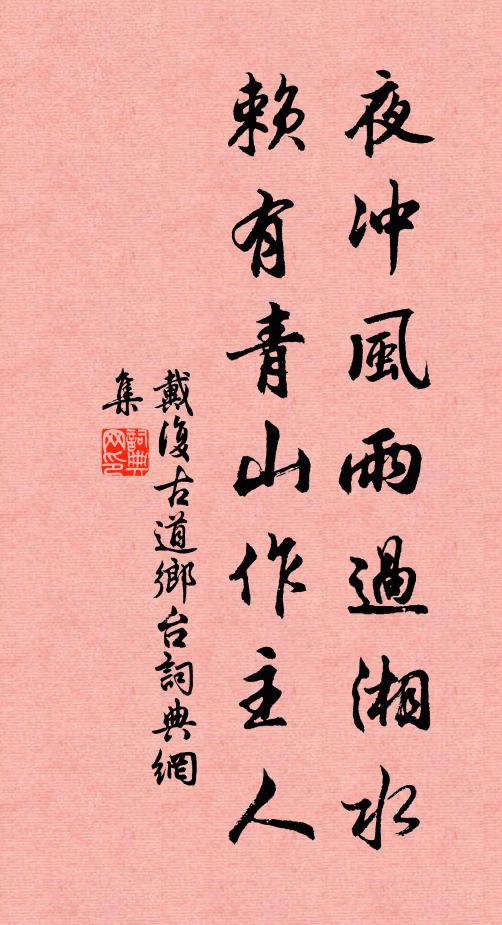 夜冲風雨過湘水
賴有青山作主人
戴復古道鄉台詞典網
集
詞典
网印